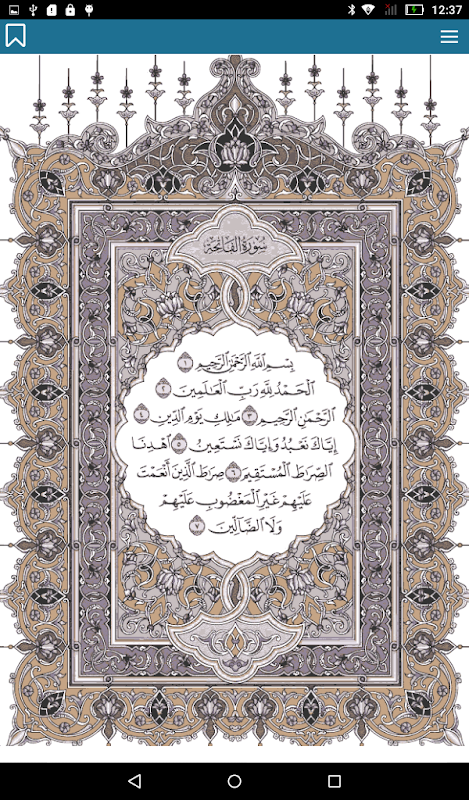 12:37
سُورَةُ الفَاتِحَةِ
بِسْمِ اللَّهِ الرَّحْمَٰنِ الرَّحِيمِ ١
الْحَمْدُ لِلَّهِ رَبِّ الْعَالَمِينَ ٢
الرَّحْمَٰنِ الرَّحِيمِ ٣ مَالِكِ يَوْمِ الدِّينِ ٤
إِيَّاكَ نَعْبُدُ وَإِيَّاكَ نَسْتَعِينُ ٥ اهْدِنَا
الصِّرَاطَ الْمُسْتَقِيمَ ٦ صِرَاطَ الَّذِينَ أَنْعَمْتَ
عَلَيْهِمْ غَيْرِ الْمَغْضُوبِ عَلَيْهِمْ
وَلَا الضَّالِّينَ ٧